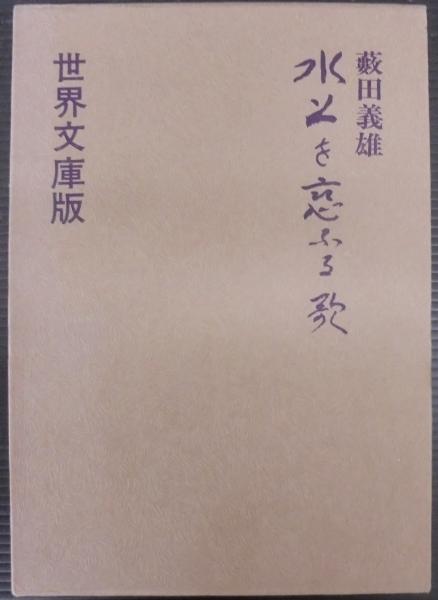 藪田義雄
水上を恋ふる歌
世界文庫版